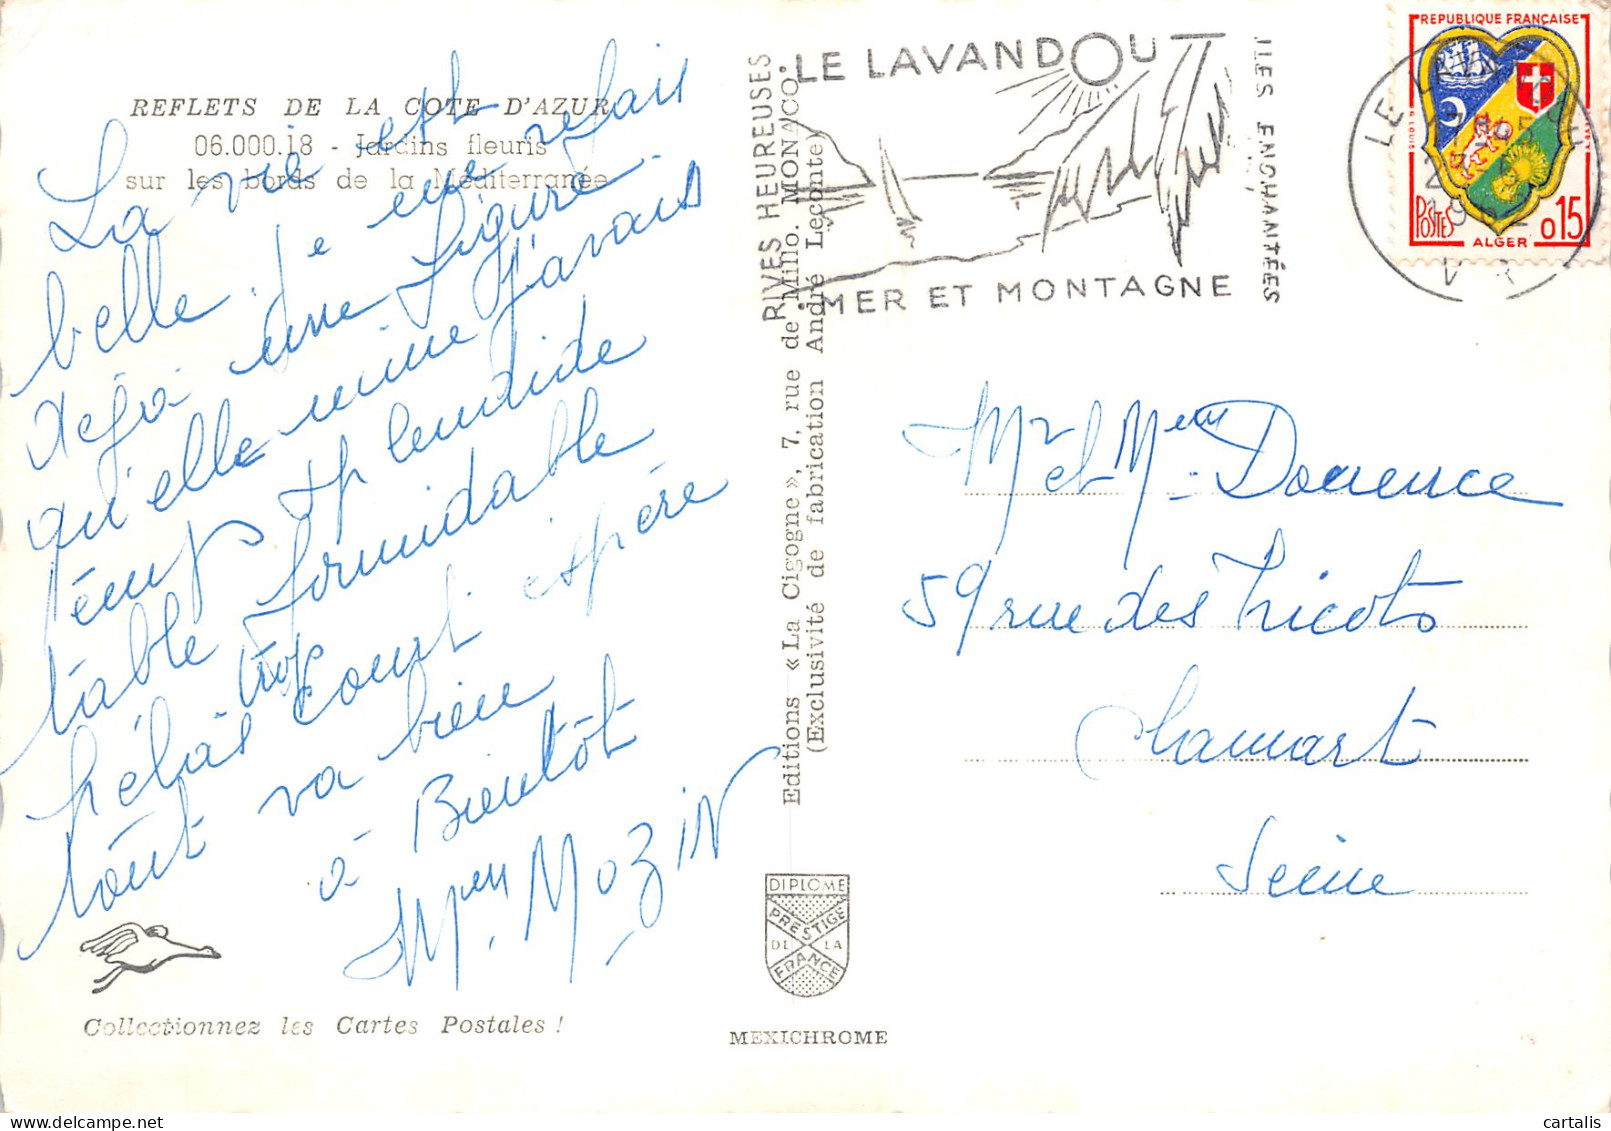 REFLETS DE LA COTE D'AZUR
06.000.18 - Jardins fleuris
sur les bords de la Méditerranée
La vie est
belle je me refais
déjà une figure
qu'elle mine j'avais
temps splendide
table formidable
hélas trop court espère
tout va bien
à Bientôt
Mme MOZIN
Collectionnez les Cartes Postales !
Editions «La Cigogne», 7, rue de Millo. MONACO.
(Exclusivité de fabrication André Leconte)
DIPLOME
PRESTIGE
DE LA
FRANCE
MEXICHROME
RIVES HEUREUSES
LE LAVANDOU
MER ET MONTAGNE
ILES ENCHANTÉES
LE LAVANDOU
VAR
REPUBLIQUE FRANÇAISE
POSTES
ALGER
0,15
Mr et Mme Douence
59 rue des Tricots
Clamart
Seine
cartalis